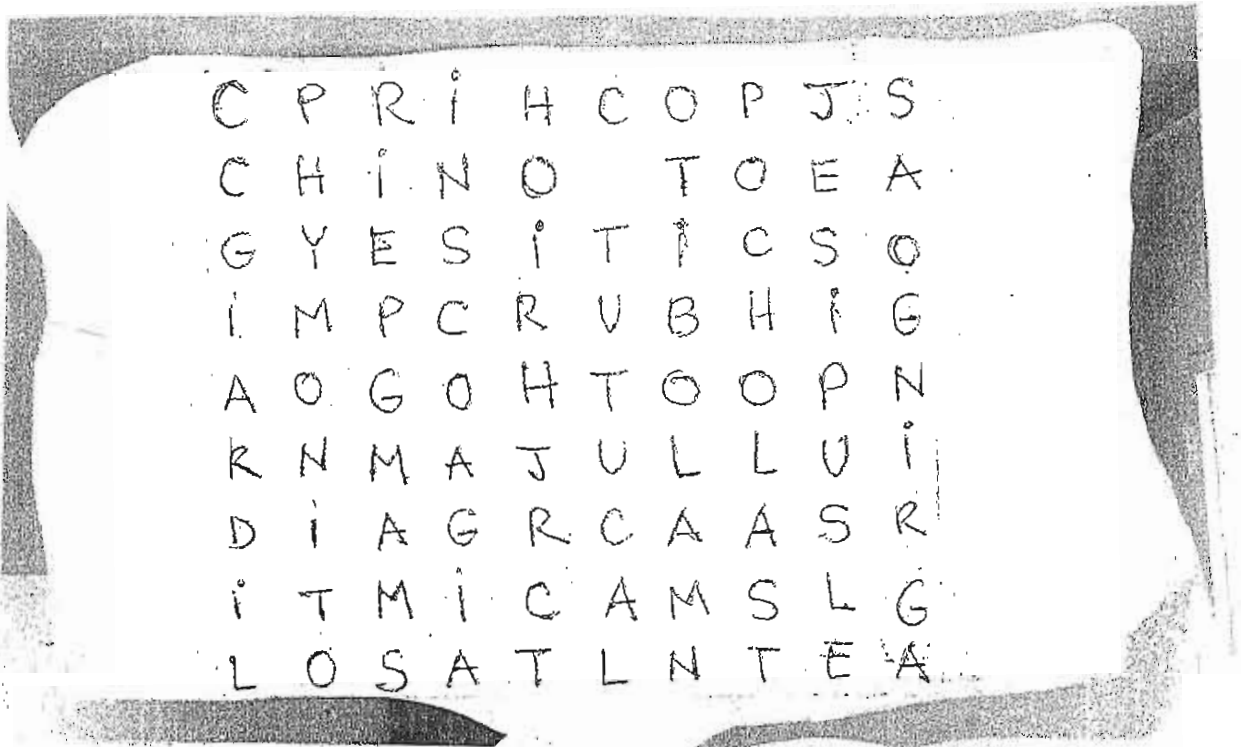 C P R i H C O P J S
C H i N O T O E A
G Y E S i T i C S O
i M P C R U B H i G
A O G O H T O O P N
K N M A J U L L U i
D i A G R C A A S R
i T M i C A M S L G
L O S A T L N T E A